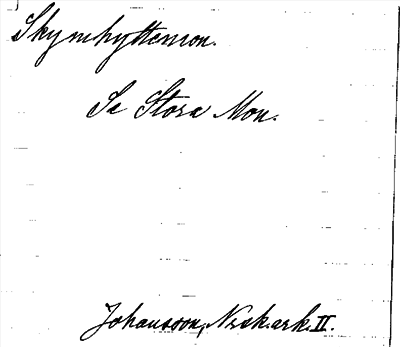 Skymhyttemon.
Se Stora Mon.
Johansson, Nrsk.ark. II.